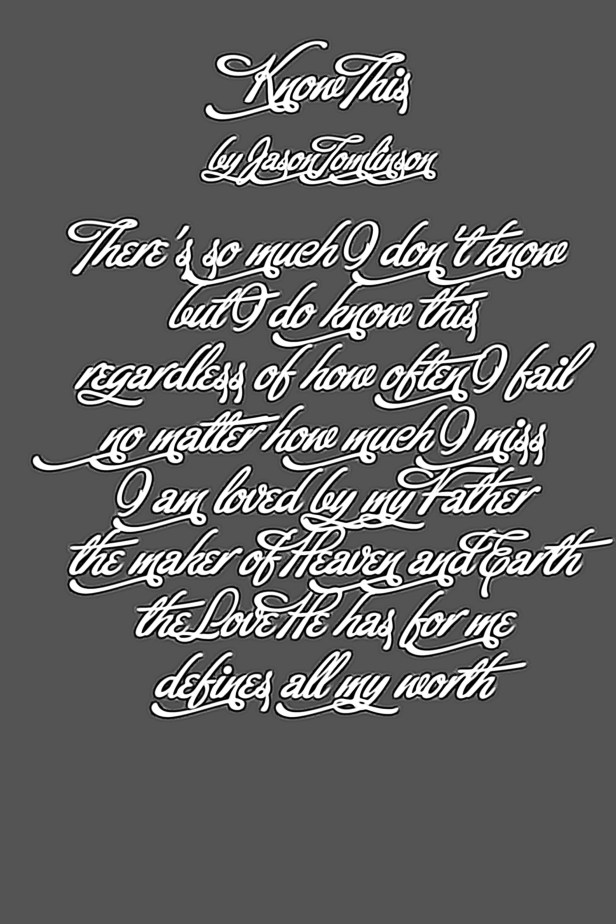 Know This
by Jason Tomlinson
There's so much I don't know
but I do know this
regardless of how often I fail
no matter how much I miss
I am loved by my Father
the maker of Heaven and Earth
the Love He has for me
defines all my worth